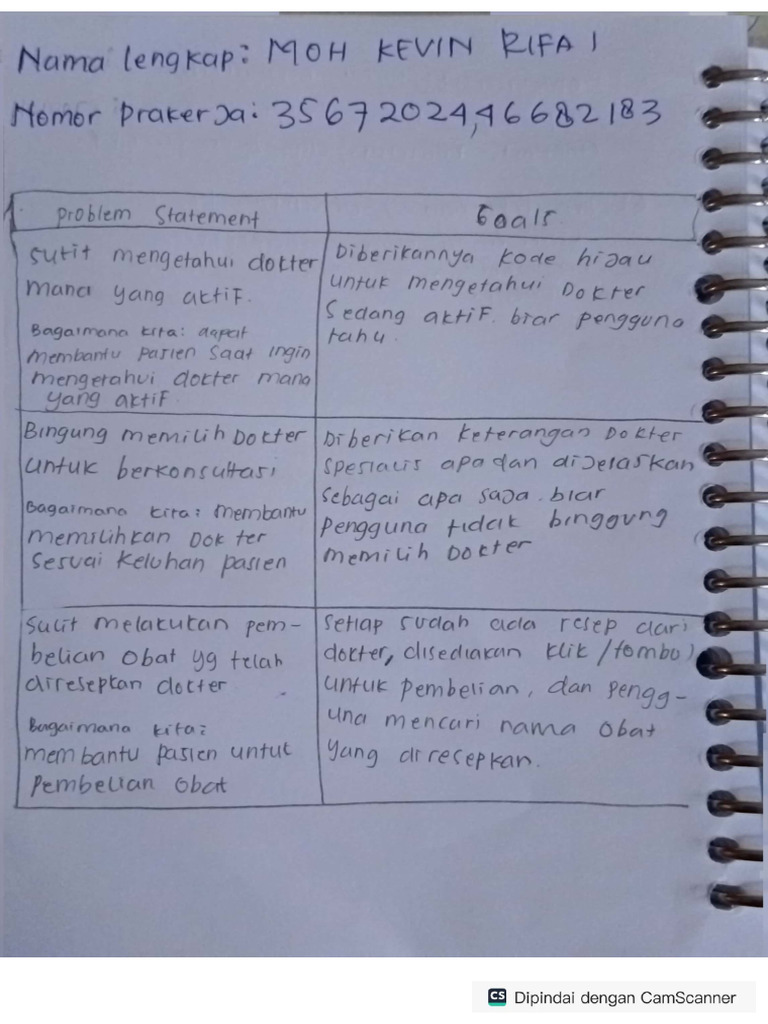 Nama lengkap: MOH KEVIN RIFAI
Nomor Prakerja: 35672024,46682183
Problem Statement
Goals
Sulit mengetahui dokter
mana yang aktif.
Bagaimana kita: dapat
membantu pasien saat ingin
mengetahui dokter mana
yang aktif.
Diberikannya kode hijau
untuk mengetahui Dokter
Sedang aktif. biar pengguna
tahu.
Bingung memilih Dokter
untuk berkonsultasi
Bagaimana kita: membantu
memilihkan Dokter
sesuai keluhan pasien
Diberikan keterangan Dokter
spesialis apa dan dijelaskan
sebagai apa saja. biar
pengguna tidak binggung
memilih Dokter
Sulit melakukan pem-
belian obat yg telah
diresepkan dokter
Bagaimana kita:
membantu pasien untuk
pembelian obat
Setiap sudah ada resep dari
dokter, disediakan klik/tombol
untuk pembelian, dan pengg-
una mencari nama obat
yang diresepkan.
CS Dipindai dengan CamScanner